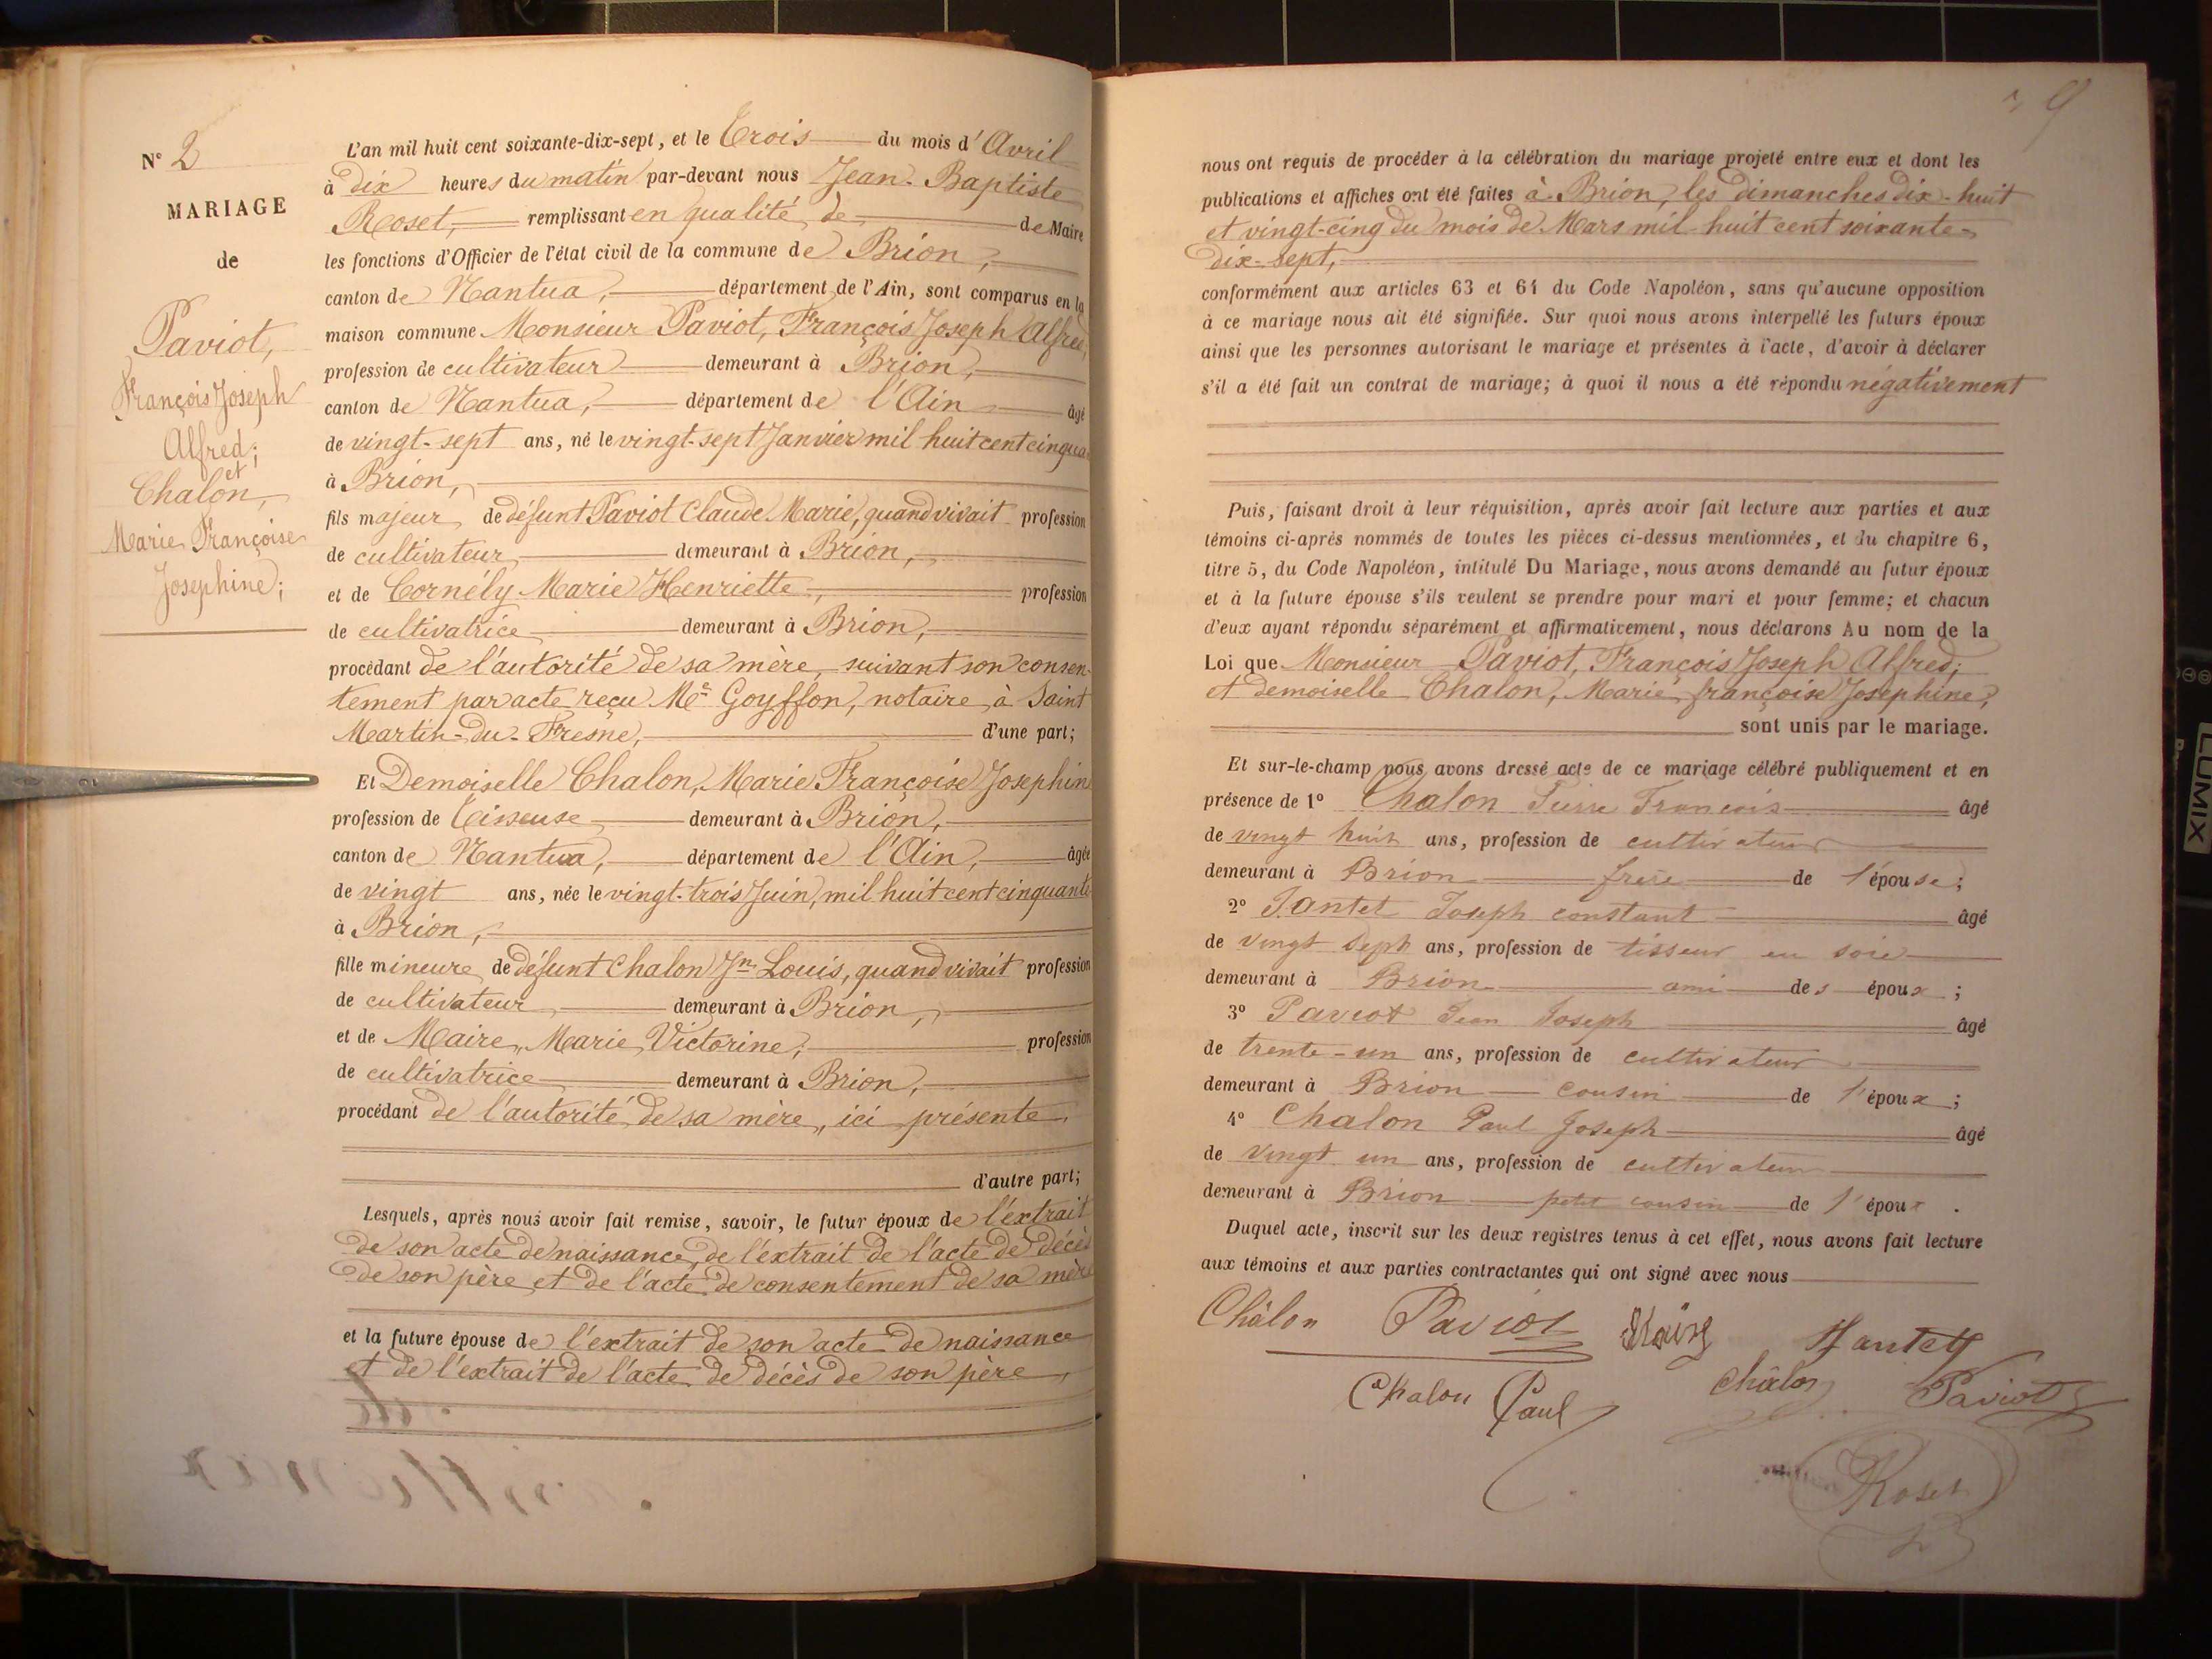 N° 2
MARIAGE
de
Paviot,
François Joseph
Alfred;
et
Chalon,
Marie Françoise
Josephine;
L'an mil huit cent soixante-dix-sept, et le Trois du mois d'Avril
à dix heures du matin par-devant nous Jean-Baptiste
Roset, remplissant en qualité de de Maire
les fonctions d'Officier de l'état civil de la commune de Brion,
canton de Nantua, département de l'Ain, sont comparus en la
maison commune Monsieur Paviot, François Joseph Alfred,
profession de cultivateur demeurant à Brion,
canton de Nantua, département de l'Ain âgé
de vingt-sept ans, né le vingt-sept Janvier mil huit cent cinqua
à Brion,
fils majeur de défunt Paviot Claude Marie, quand vivait profession
de cultivateur demeurant à Brion,
et de Cornély Marie Henriette, profession
de cultivatrice demeurant à Brion,
procédant de l'autorité de sa mère, suivant son consen-
tement par acte reçu Me Goyffon, notaire à Saint
Martin-du-Fresne, d'une part;
Et Demoiselle Chalon, Marie Françoise Josephin
profession de Tisseuse demeurant à Brion,
canton de Nantua, département de l'Ain, âgée
de vingt ans, née le vingt-trois Juin, mil huit cent cinquante
à Brion,
fille mineure de défunt Chalon Jn Louis, quand vivait profession
de cultivateur demeurant à Brion,
et de Maire, Marie Victorine; profession
de cultivatrice demeurant à Brion,
procédant de l'autorité de sa mère, ici présente,
d'autre part;
Lesquels, après nous avoir fait remise, savoir, le futur époux de l'extrait
de son acte de naissance, de l'extrait de l'acte de décès
de son père et de l'acte de consentement de sa mère
et la future épouse de l'extrait de son acte de naissance
et de l'extrait de l'acte de décès de son père,
9
nous ont requis de procéder à la célébration du mariage projeté entre eux et dont les
publications et affiches ont été faites à Brion, les dimanches dix-huit
et vingt-cinq du mois de Mars mil-huit cent soixante-
dix-sept,
conformément aux articles 63 et 64 du Code Napoléon, sans qu'aucune opposition
à ce mariage nous ait été signifiée. Sur quoi nous avons interpellé les futurs époux
ainsi que les personnes autorisant le mariage et présentes à l'acte, d'avoir à déclarer
s'il a été fait un contrat de mariage; à quoi il nous a été répondu négativement
Puis, faisant droit à leur réquisition, après avoir fait lecture aux parties et aux
témoins ci-après nommés de toutes les pièces ci-dessus mentionnées, et du chapitre 6,
titre 5, du Code Napoléon, intitulé Du Mariage, nous avons demandé au futur époux
et à la future épouse s'ils veulent se prendre pour mari et pour femme; et chacun
d'eux ayant répondu séparément et affirmativement, nous déclarons Au nom de la
Loi que Monsieur Paviot, François Joseph Alfred;
et demoiselle Chalon, Marie françoise Josephine,
sont unis par le mariage.
Et sur-le-champ nous avons dressé acte de ce mariage célébré publiquement et en
présence de 1° Chalon Pierre Francois âgé
de vingt huit ans, profession de cultivateur
demeurant à Brion frere de l'épouse;
2° Jantet Joseph constant âgé
de vingt Sept ans, profession de tisseur en soie
demeurant à Brion ami des époux;
3° Paviot Jean Joseph âgé
de trente-un ans, profession de cultivateur
demeurant à Brion cousin de l'époux;
4° Chalon Paul Joseph âgé
de vingt un ans, profession de cultivateur
demeurant à Brion petit cousin de l'époux.
Duquel acte, inscrit sur les deux registres tenus à cet effet, nous avons fait lecture
aux témoins et aux parties contractantes qui ont signé avec nous
Châlon Paviot Jantet
Chalon Paul Châlon Paviot
Roset
LUMIX